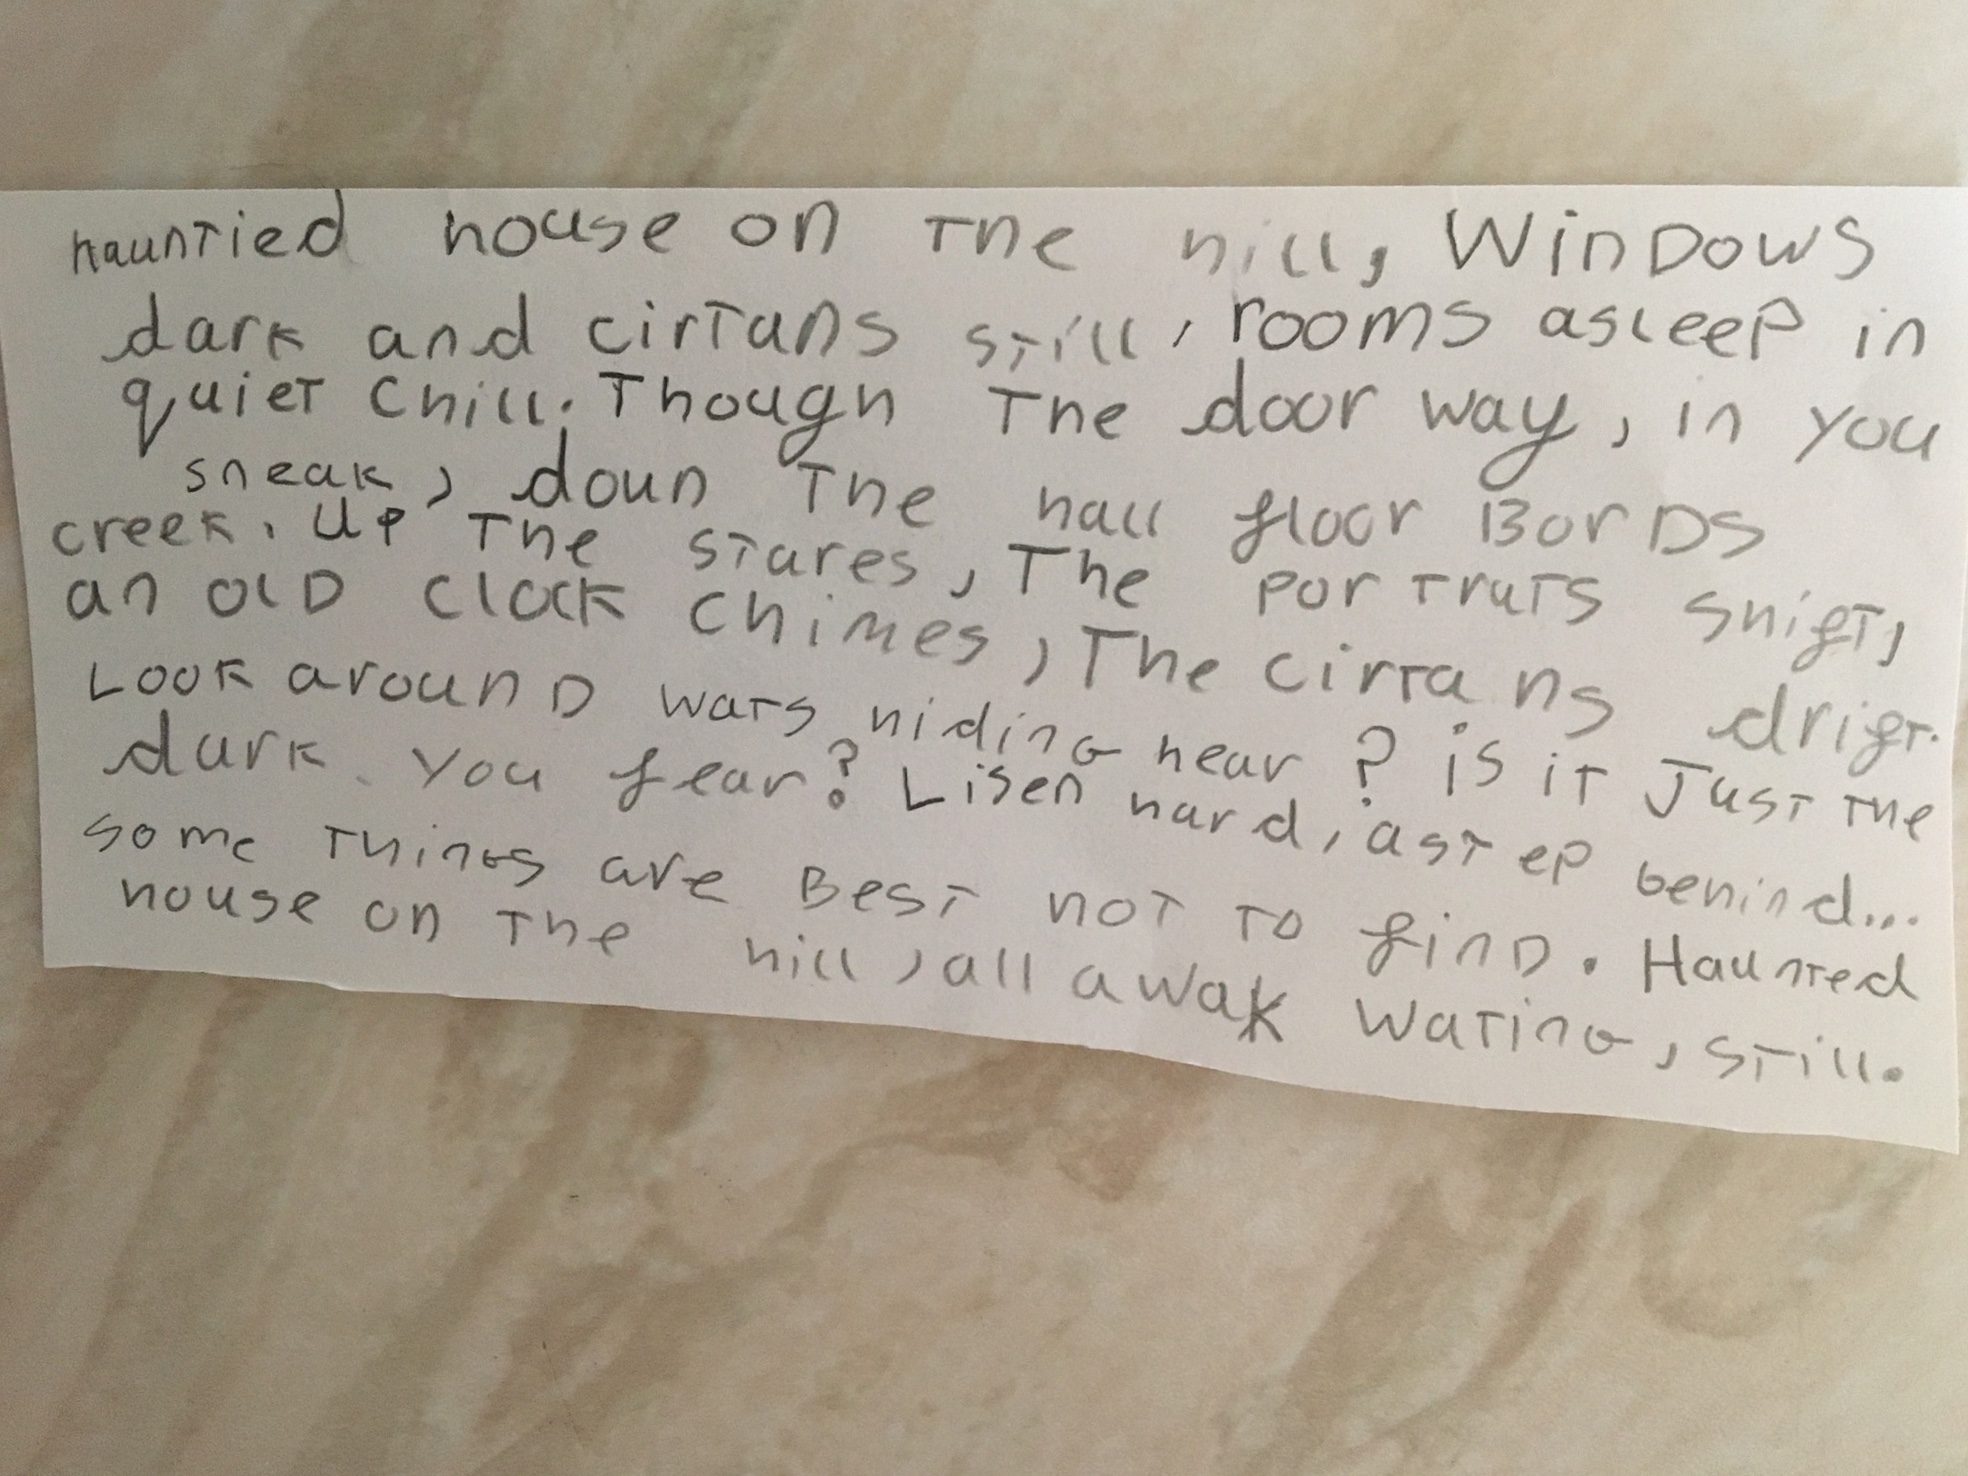 hauntied house on the hill, WinDows
dark and cirtans still, rooms asleep in
quiet chill. Though The door way, in you
sneak, doun The hall floor BorDs
creek. Up The stares, The portruts shift,
an olD clock chimes, The cirtans drift.
Look arounD wats hiding hear? is it Just the
dark you fear? Lisen hard, a step behind...
some things are Best not to finD. Haunted
house on the hill, all awak wating, still.